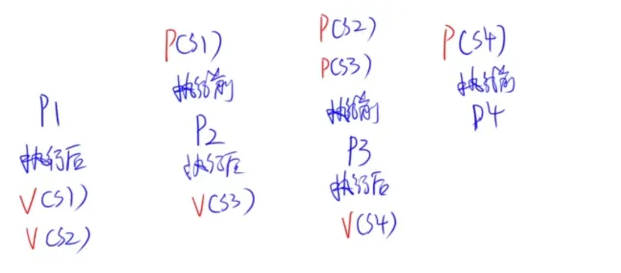 P1
执行后
V(S1)
V(S2)
P(S1)
执行前
P2
执行后
V(S3)
P(S2)
P(S3)
执行前
P3
执行后
V(S4)
P(S4)
执行前
P4